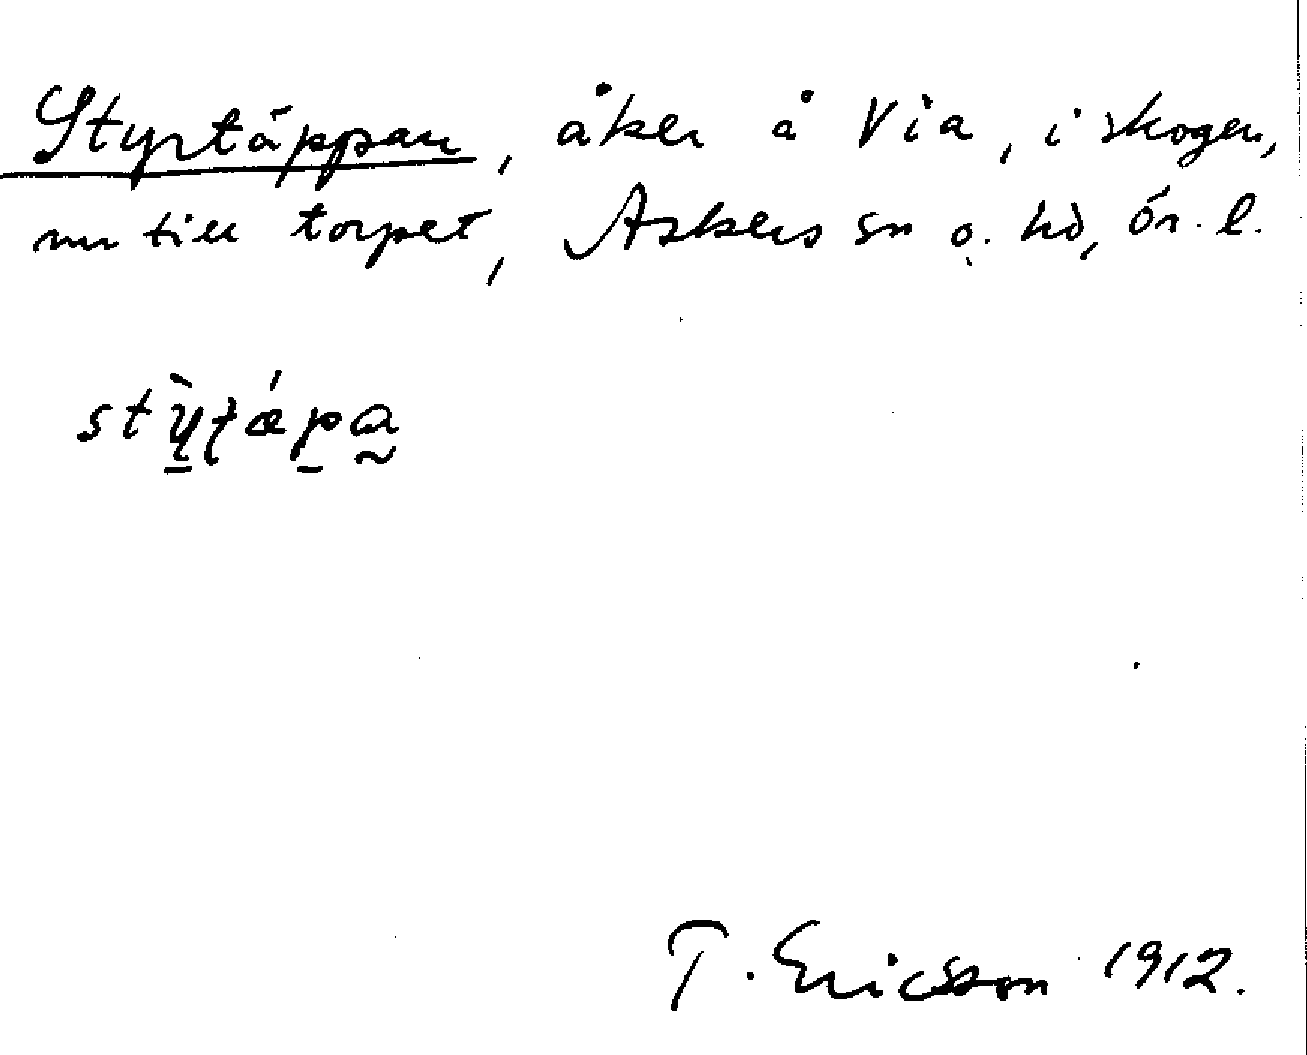 Styrtäppan, åker å Via, i skogen,
nu till torpet, Askers sn o. hd, Ör. l.
stỳʈǽpa
T. Ericsson 1912.